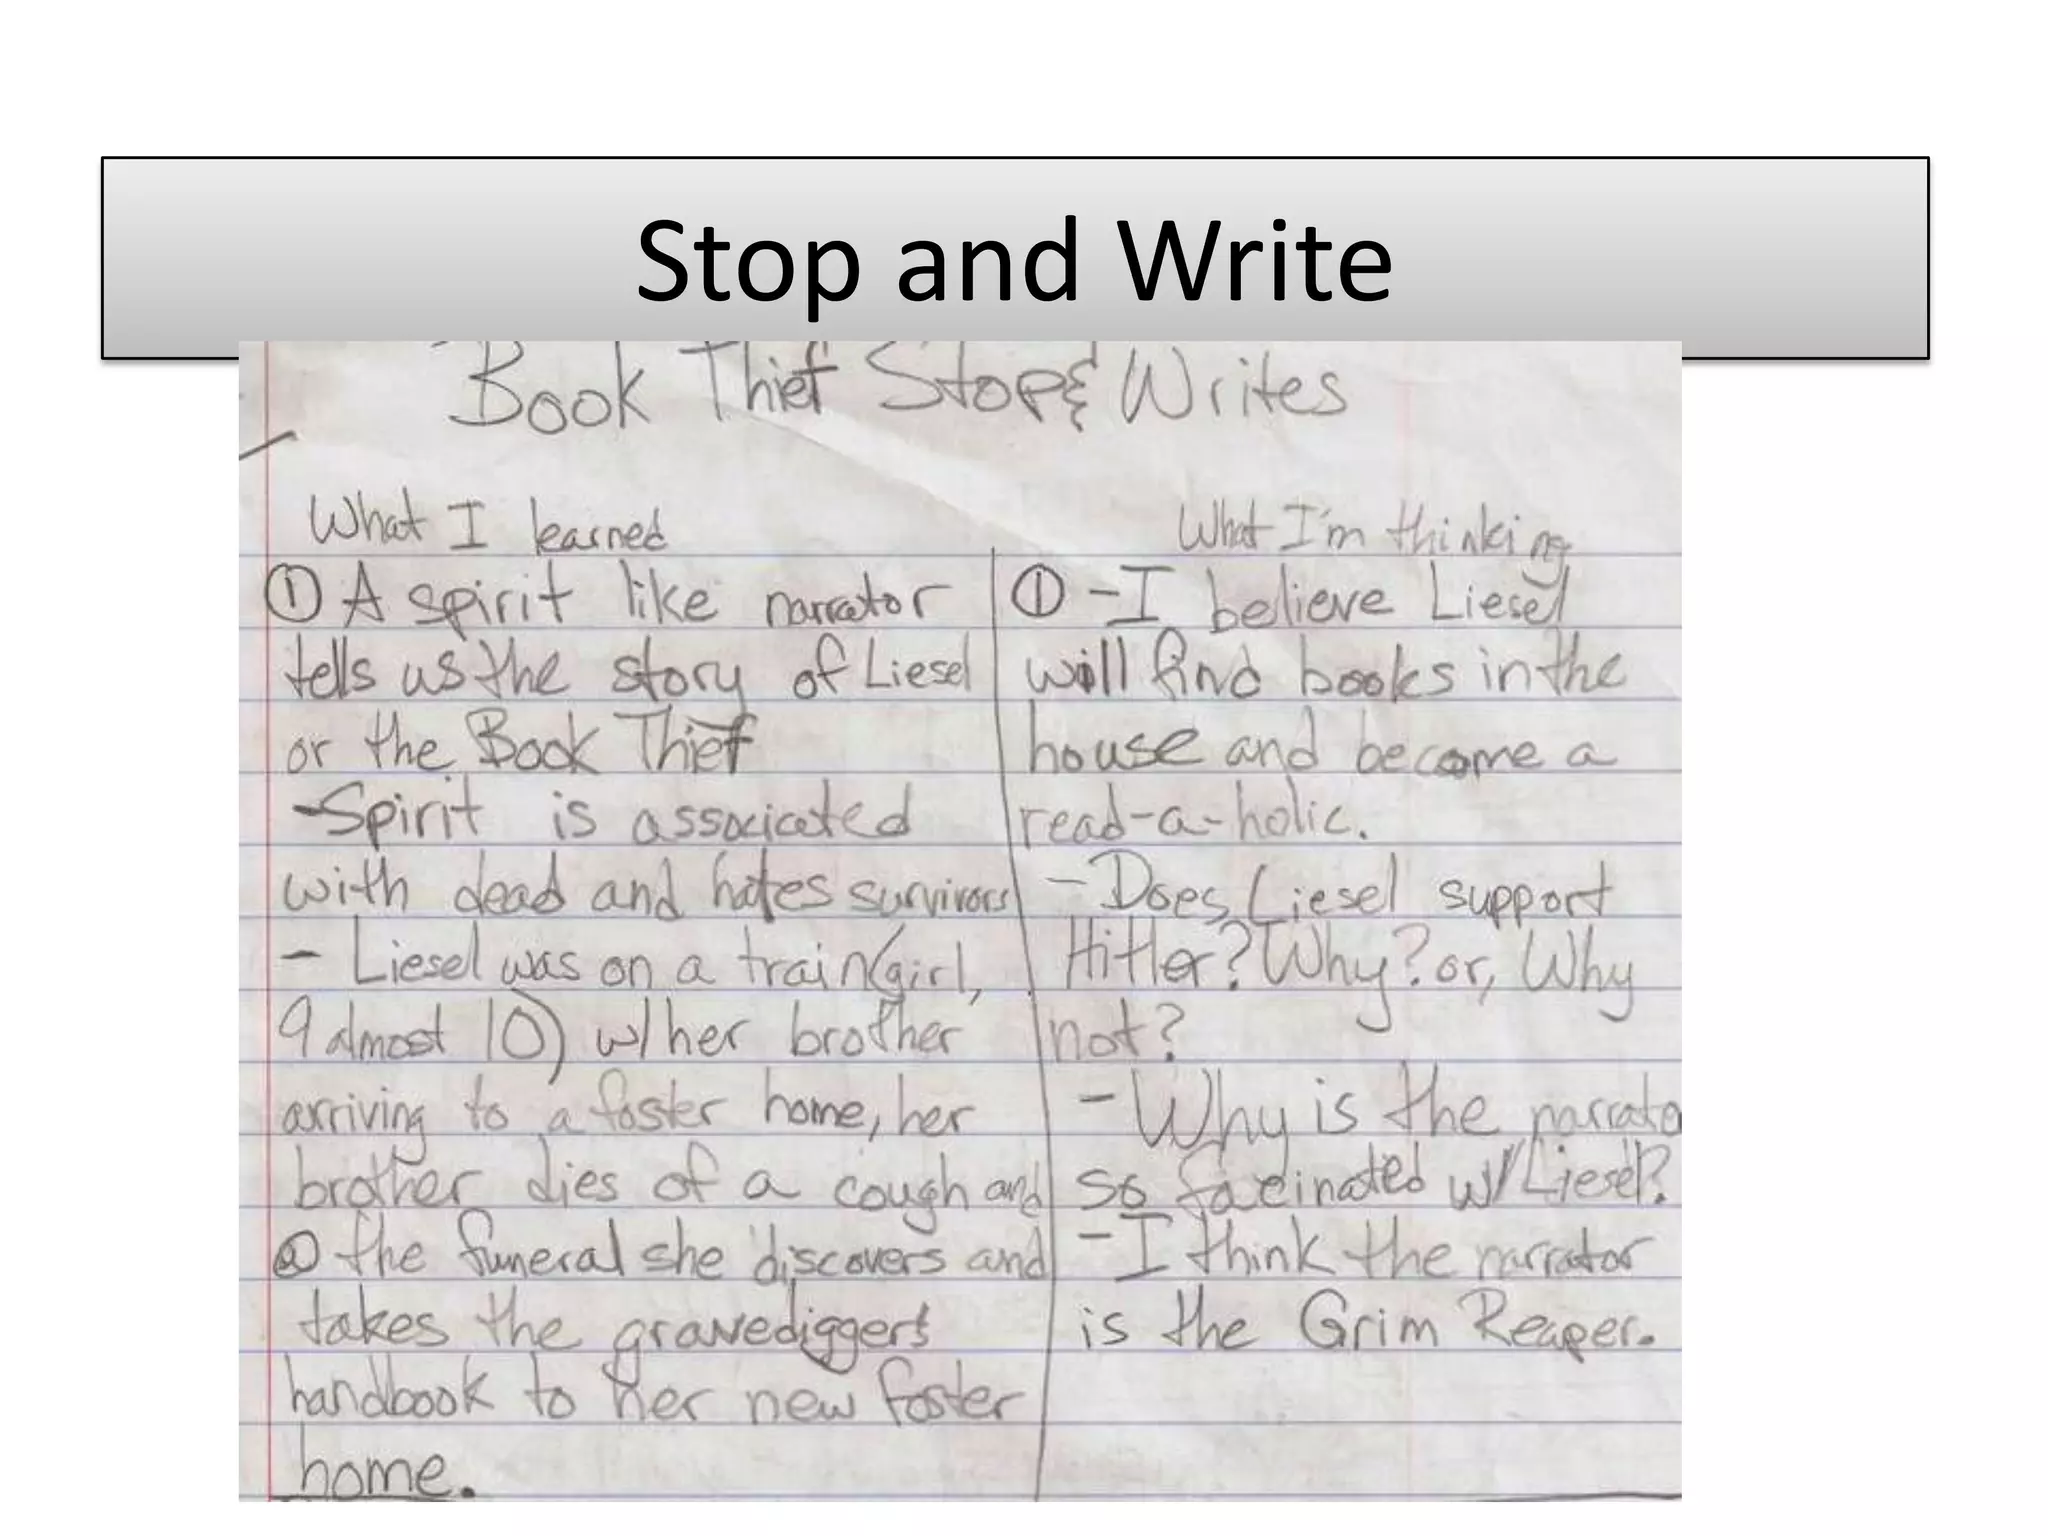 Stop and Write
Book Thief Stop & Writes
What I learned
① A spirit like narrator
tells us the story of Liesel
or the Book Thief
-Spirit is associated
with dead and hates survivors
- Liesel was on a train (girl,
9 almost 10) w/ her brother
arriving to a foster home, her
brother dies of a cough and
@ the funeral she discovers and
takes the gravediggers
handbook to her new foster
home.
What I'm thinking
① - I believe Liesel
will find books in the
house and become a
read-a-holic.
- Does Liesel support
Hitler? Why? or, Why
not?
- Why is the narrato
so facinated w/ Liesel?
- I think the narrator
is the Grim Reaper.